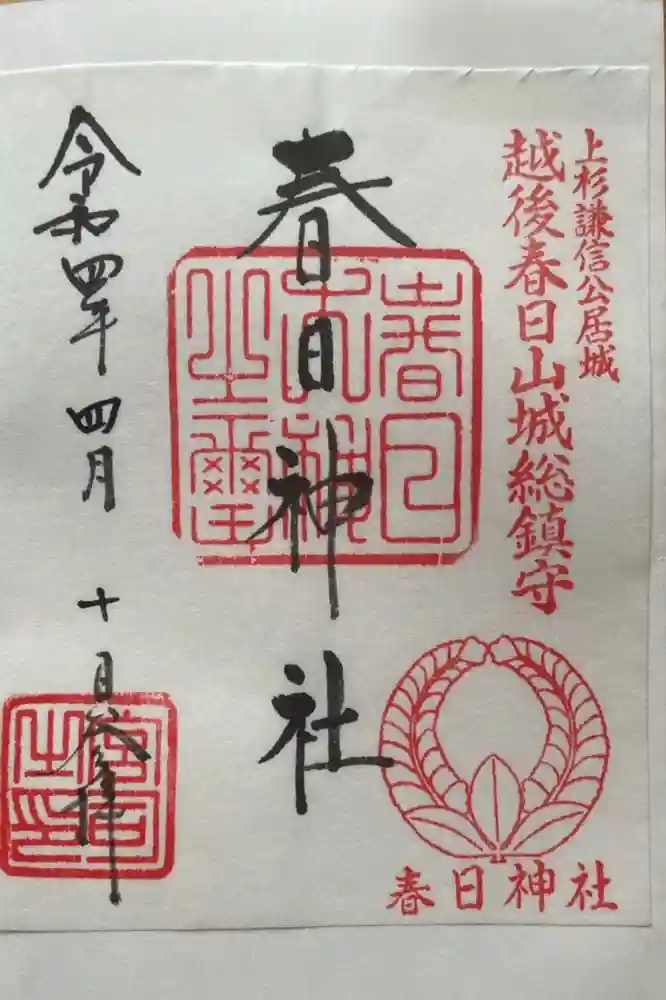 上杉謙信公居城
越後春日山城総鎮守
春日神社
春日大神之璽
令和四年四月十日参拝
宮司之印
春日神社